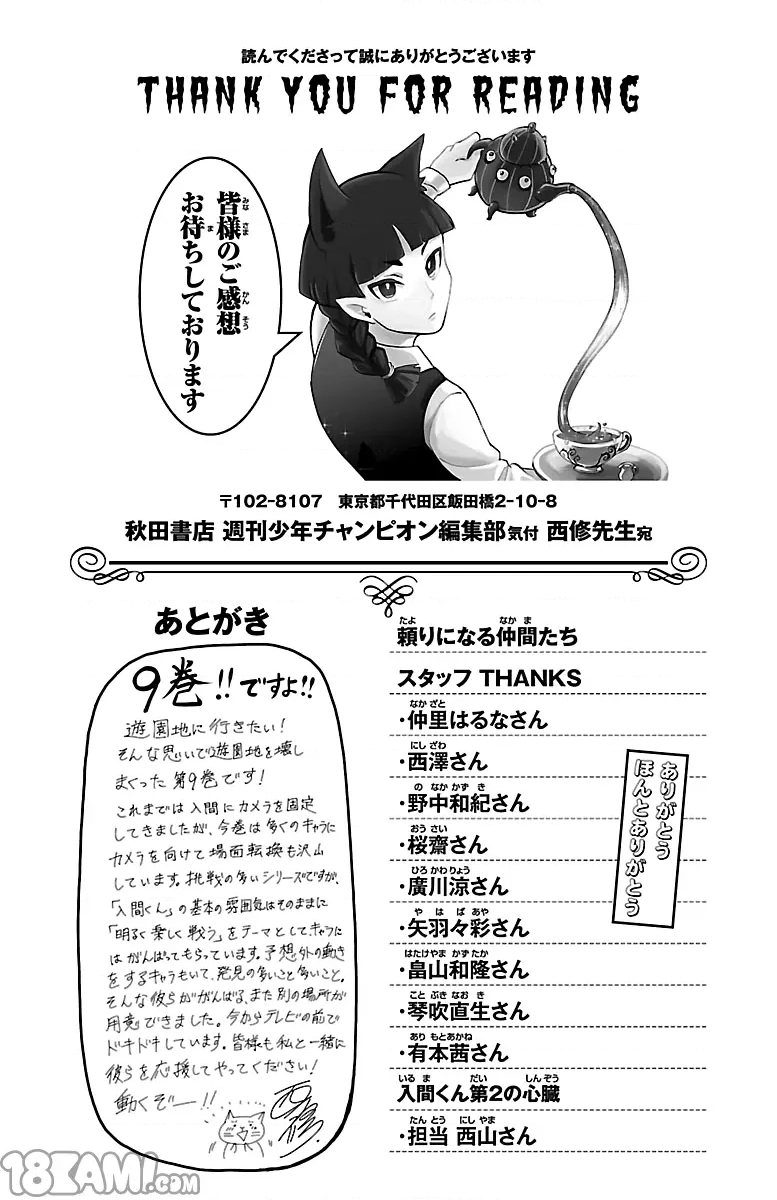 読んでくださって誠にありがとうございます
THANK YOU FOR READING
皆様のご感想
お待ちしております
〒102-8107 東京都千代田区飯田橋2-10-8
秋田書店 週刊少年チャンピオン編集部気付 西修先生宛
あとがき
9巻!!ですよ!!
遊園地に行きたい!
そんな思いで遊園地を壊し
まくった第9巻です!
これまでは入間にカメラを固定
してきましたが、今巻は多くのキャラに
カメラを向けて場面転換も沢山
しています。挑戦の多いシリーズですが、
「入間くん」の基本の雰囲気はそのままに
「明るく楽しく戦う」をテーマとしてキャラに
はがんばってもらっています。予想外の動き
をするキャラもいて、発見の多いこと多いこと。
そんな彼らががんばる、また別の場所が
用意できました。今からテレビの前で
ドキドキしています。皆様も私と一緒に
彼らを応援してやってください!
動くぞー!!
西修
頼りになる仲間たち
スタッフ THANKS
・仲里はるなさん
・西澤さん
・野中和紀さん
・桜齋さん
・廣川涼さん
・矢羽々彩さん
・畠山和隆さん
・琴吹直生さん
・有本茜さん
入間くん第2の心臓
・担当 西山さん
ありがとう
ほんとありがとう
18KAMI.COM!